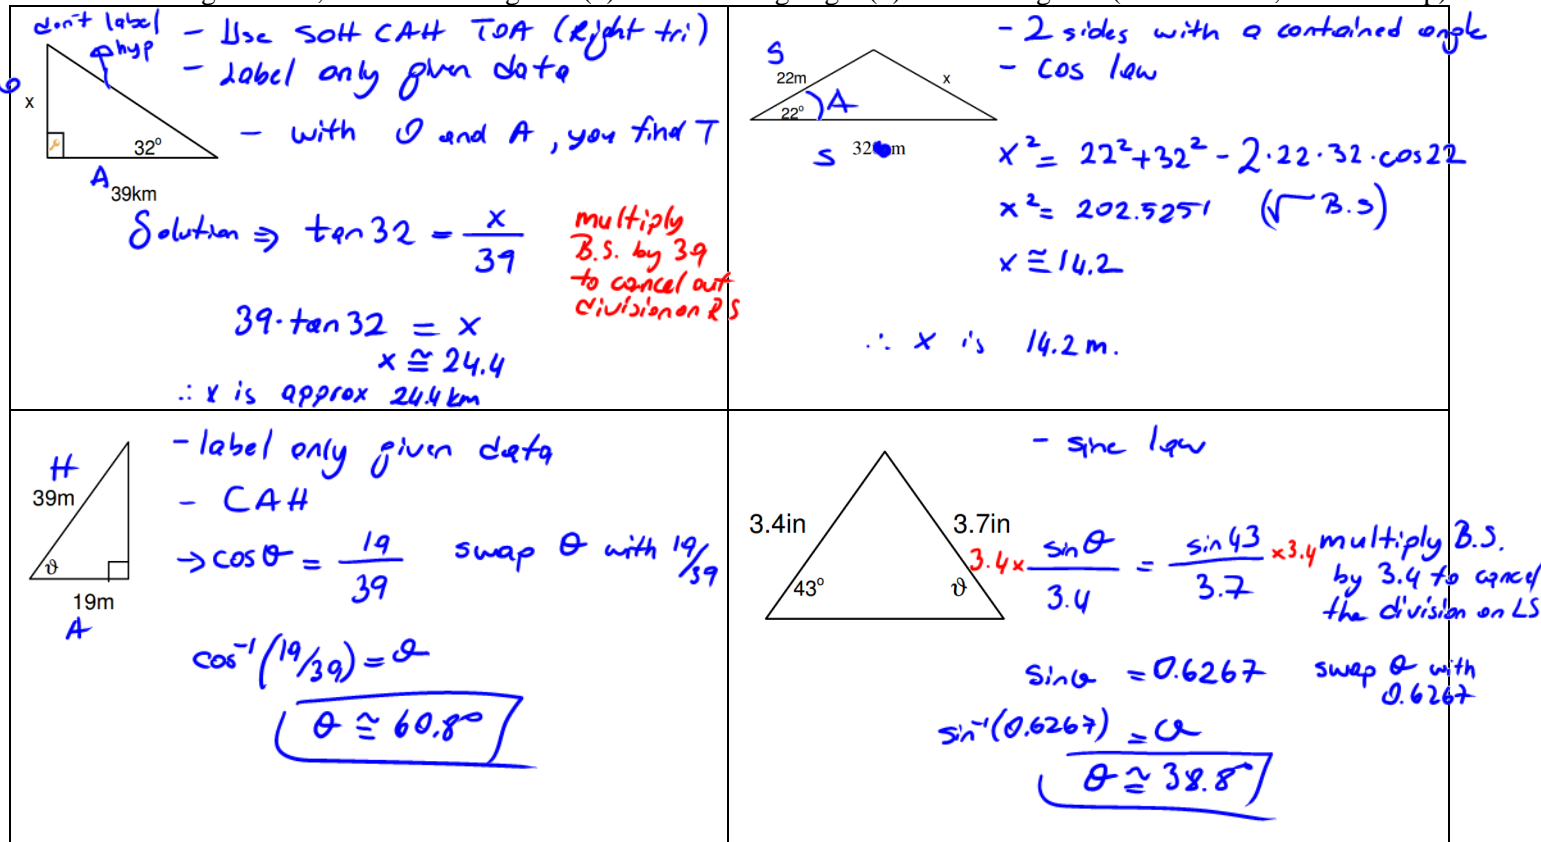 don't label
hyp
- Use SOH CAH TOA (Right tri)
- Label only given data
- with O and A, you find T
O
x
32°
A
39km
Solution ⇒ tan 32 = x/39
multiply
B.S. by 39
to cancel out
division on RS
39·tan 32 = x
x ≅ 24.4
∴ x is approx 24.4 km
- 2 sides with a contained angle
- cos law
S
22m
x
22°
A
S
32 m
x² = 22² + 32² - 2·22·32·cos22
x² = 202.5251 (√ B.S)
x ≅ 14.2
∴ x is 14.2 m.
- label only given data
- CAH
H
39m
θ
19m
A
→ cosθ = 19/39 swap θ with 19/39
cos⁻¹(19/39) = θ
θ ≅ 60.8°
- sine law
3.4in
3.7in
43°
θ
3.4 × sinθ/3.4 = sin 43/3.7 × 3.4
multiply B.S.
by 3.4 to cancel
the division on LS
sinθ = 0.6267 swap θ with
0.6267
sin⁻¹(0.6267) = θ
θ ≅ 38.8°